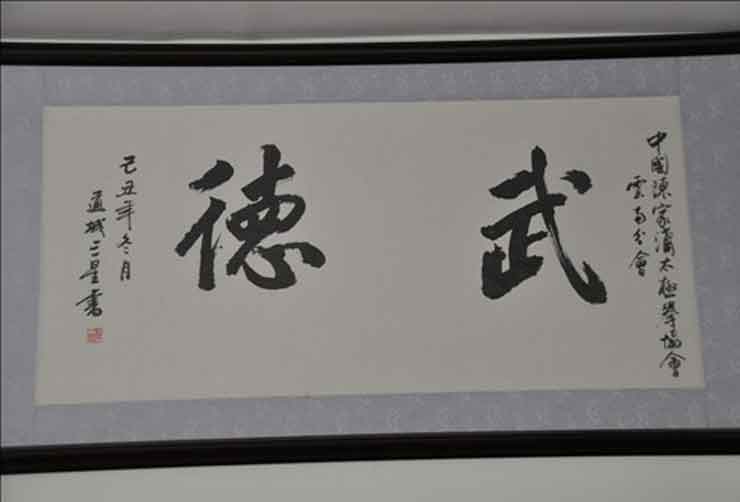 中國陳家溝太極拳協會
雲南分會
武德
己丑年冬月
三星書